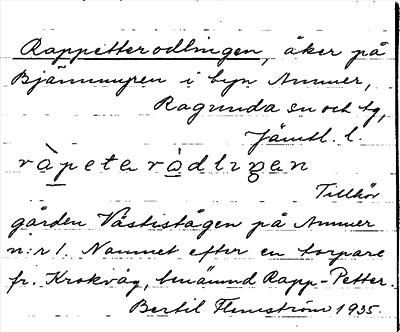 Rappetterodlingen, åker på
Bjännmyren i byn Ammer,
Ragunda sn och tg,
Jämtl. l.
ràpeteròdlıŋen
Tillhör
gården Västistågen på Ammer
n:r 1. Namnet efter en torpare
fr. Krokvåg, benämnd Rapp-Petter.
Bertil Flemström 1935.